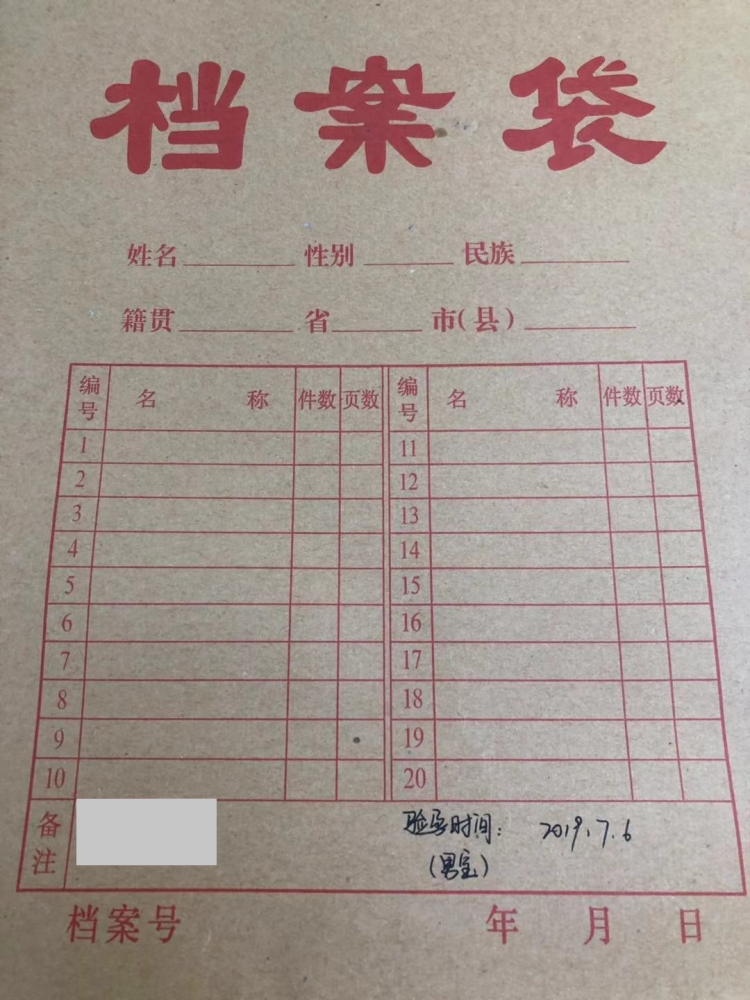 档案袋
姓名 性别 民族
籍贯 省 市(县)
编号 名称 件数 页数 编号 名称 件数 页数
1 11
2 12
3 13
4 14
5 15
6 16
7 17
8 18
9 19
10 20
备注 验孕时间: 2019.7.6
(男宝)
档案号 年 月 日